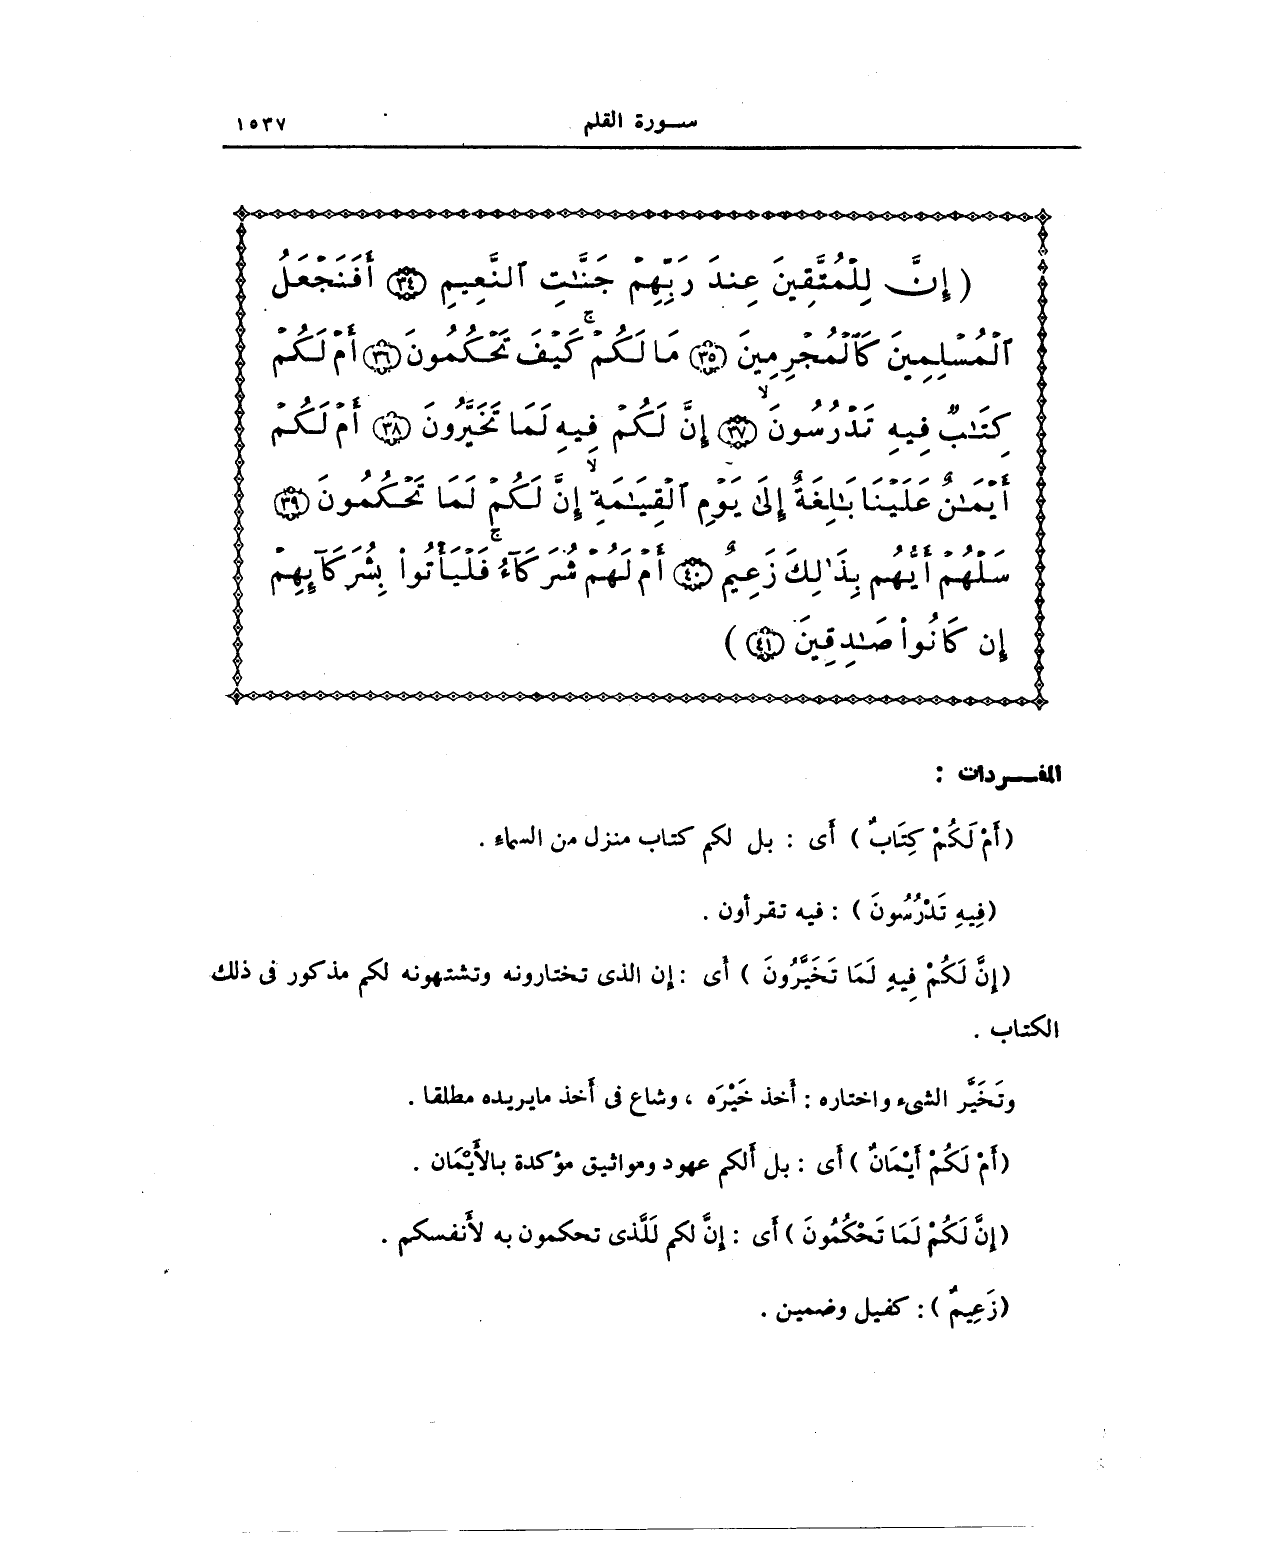 سـورة القلم ١٥٣٧
( إِنَّ لِلْمُتَّقِينَ عِندَ رَبِّهِمْ جَنَّـٰتِ ٱلنَّعِيمِ ٣٤ أَفَنَجْعَلُ
ٱلْمُسْلِمِينَ كَٱلْمُجْرِمِينَ ٣٥ مَا لَكُمْ ۚ كَيْفَ تَحْكُمُونَ ٣٦ أَمْ لَكُمْ
كِتَـٰبٌ فِيهِ تَدْرُسُونَ ۙ ٣٧ إِنَّ لَكُمْ فِيهِ لَمَا تَخَيَّرُونَ ٣٨ أَمْ لَكُمْ
أَيْمَـٰنٌ عَلَيْنَا بَـٰلِغَةٌ إِلَىٰ يَوْمِ ٱلْقِيَـٰمَةِ ۙ إِنَّ لَكُمْ لَمَا تَحْكُمُونَ ٣٩
سَلْهُمْ أَيُّهُم بِذَٰلِكَ زَعِيمٌ ٤٠ أَمْ لَهُمْ شُرَكَآءُ ۚ فَلْيَأْتُوا۟ بِشُرَكَآئِهِمْ
إِن كَانُوا۟ صَـٰدِقِينَ ٤١ )
المفـــردات :
( أَمْ لَكُمْ كِتَابٌ ) أى : بل لكم كتاب منزل من السماء .
( فِيهِ تَدْرُسُونَ ) : فيه تقرأون .
( إِنَّ لَكُمْ فِيهِ لَمَا تَخَيَّرُونَ ) أى : إن الذى تختارونه وتشتهونه لكم مذكور فى ذلك
الكتاب .
وتَخَيَّر الشىء واختاره : أخذ خَيْرَه ، وشاع فى أخذ مايريده مطلقا .
( أَمْ لَكُمْ أَيْمَانٌ ) أى : بل ألكم عهود ومواثيق مؤكدة بالأَيْمَان .
( إِنَّ لَكُمْ لَمَا تَحْكُمُونَ ) أى : إنَّ لكم لَلَّذى تحكمون به لأنفسكم .
( زَعِيمٌ ) : كفيل وضمين .